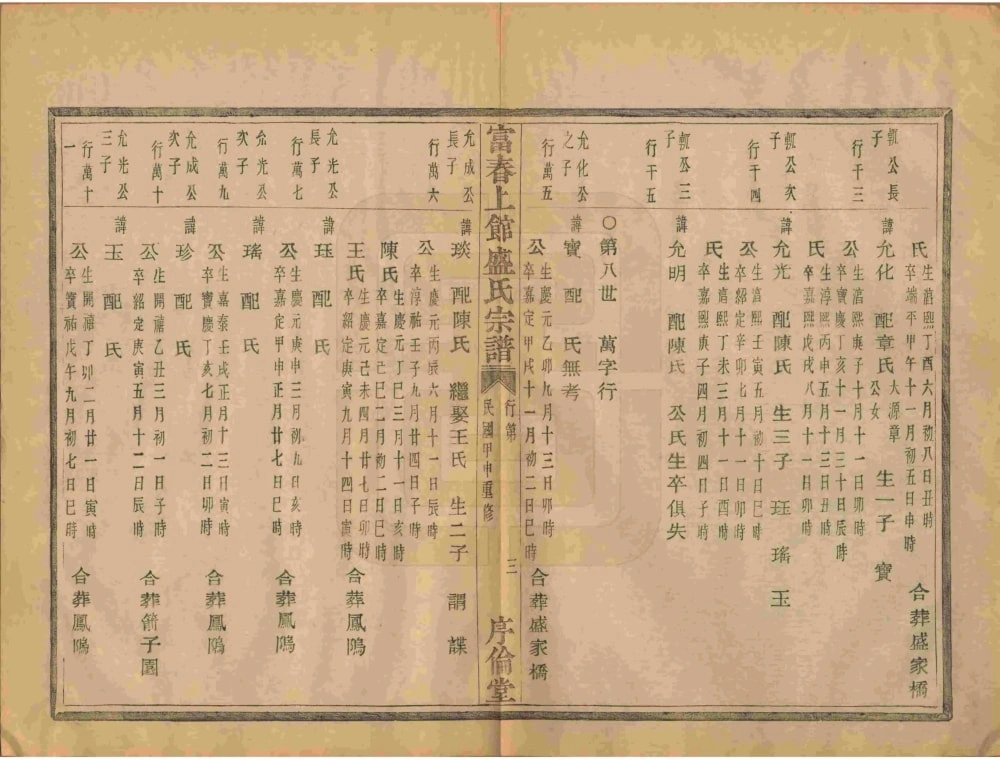 氏 生淳熙丁酉六月初八日丑時
卒端平甲午十一月初五日申時
合葬盛家橋
甄公長子
行千三
諱允化 配章氏 大源章公女 生一子 寶
公 生淳熙庚子十月十一日卯時
卒寶慶丁亥十一月三十日辰時
氏 生淳熙丙申五月十三日丑時
卒嘉定戊戌八月十一日卯時
甄公次子
行千四
諱允光 配陳氏 生三子 珏 瑤 玉
公 生淳熙壬寅五月初十日子時
卒紹定辛卯七月十一日卯時
氏 生淳熙丁未三月十一日酉時
卒嘉熙庚子四月初四日子時
甄公三子
行千五
諱允明 配陳氏 公氏生卒俱失
○第八世 萬字行
允化公之子
行萬五
諱寶 配 氏無考
公 生慶元乙卯九月十三日卯時
卒嘉定甲戌十一月初二日巳時
合葬盛家橋
富春上館盛氏宗譜
行第
民國甲申重修
三
序倫堂
允成公長子
行萬六
諱琰 配陳氏 繼娶王氏 生二子 謂 諜
公 生慶元丙辰六月十一日辰時
卒淳祐壬子九月初四日子時
陳氏 生慶元丁巳三月十一日亥時
卒嘉定己巳二月初二日巳時
王氏 生慶元己未四月廿七日卯時
卒紹定庚寅九月十四日寅時
合葬鳳隖
允光公長子
行萬七
諱珏 配 氏
公 生慶元庚申三月初九日亥時
卒嘉定甲申正月廿七日巳時
合葬鳳隖
允光公次子
行萬九
諱瑤 配 氏
公 生嘉泰壬戌正月十三日寅時
卒寶慶丁亥七月初二日卯時
合葬鳳隖
允成公次子
行萬十
諱珍 配 氏
公 生開禧乙丑三月初一日子時
卒紹定庚寅五月十二日辰時
合葬箭子園
允光公三子
行萬十一
諱玉 配 氏
公 生開禧丁卯二月廿一日寅時
卒寶祐戊午九月初七日巳時
合葬鳳隖